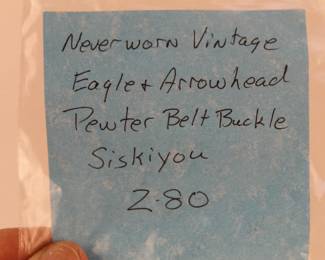 Never worn Vintage
Eagle + Arrowhead
Pewter Belt Buckle
Siskiyou
Z-80